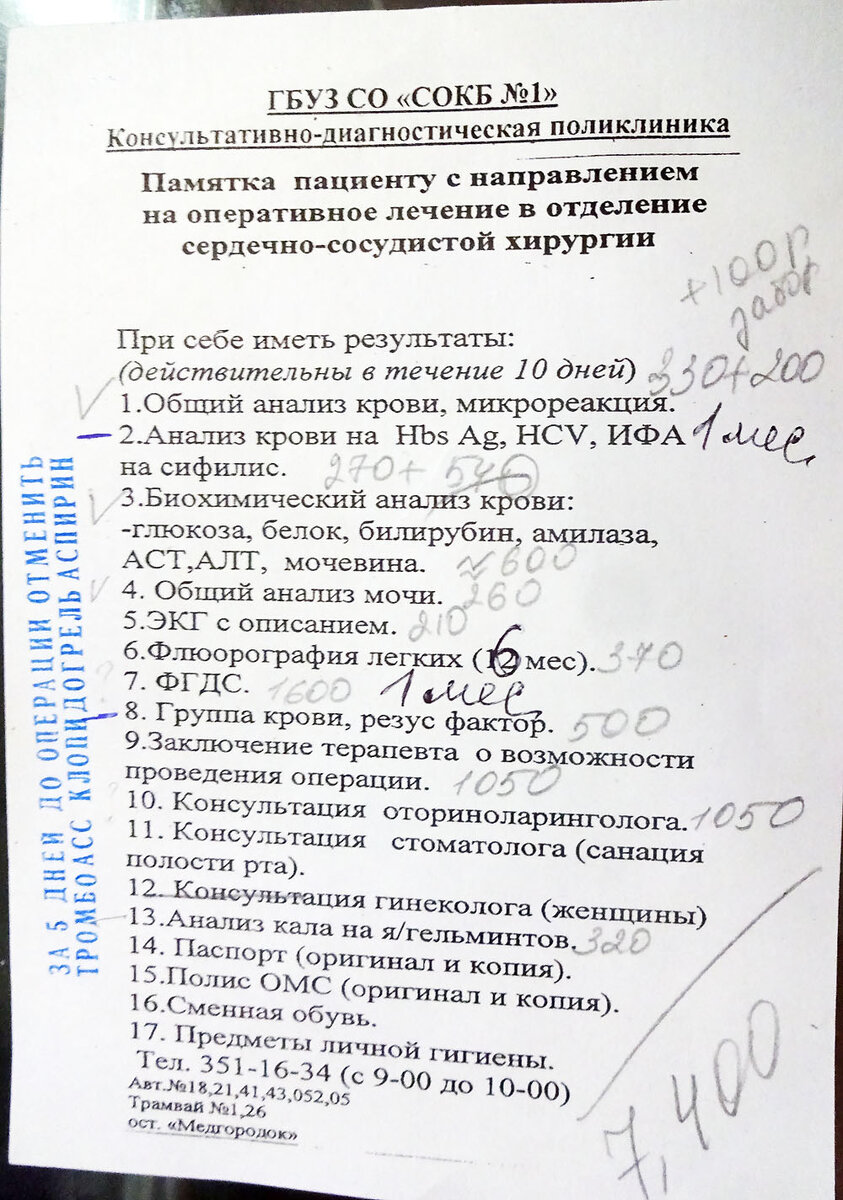 ГБУЗ СО «СОКБ №1»
Консультативно-диагностическая поликлиника
Памятка пациенту с направлением
на оперативное лечение в отделение
сердечно-сосудистой хирургии
+100р
забор
При себе иметь результаты:
(действительны в течение 10 дней) 330+200
1.Общий анализ крови, микрореакция.
2.Анализ крови на Hbs Ag, HCV, ИФА 1 мес,
на сифилис. 270+
3.Биохимический анализ крови:
-глюкоза, белок, билирубин, амилаза,
АСТ,АЛТ, мочевина. ≈600
4. Общий анализ мочи. 260
5.ЭКГ с описанием. 210
6.Флюорография легких (12 мес). 370
6
7. ФГДС. 1600 1 мес
8. Группа крови, резус фактор. 500
9.Заключение терапевта о возможности
проведения операции. 1050
10. Консультация оториноларинголога. 1050
11. Консультация стоматолога (санация
полости рта).
12. Консультация гинеколога (женщины)
13.Анализ кала на я/гельминтов. 320
14. Паспорт (оригинал и копия).
15.Полис ОМС (оригинал и копия).
16.Сменная обувь.
17. Предметы личной гигиены.
Тел. 351-16-34 (с 9-00 до 10-00)
Авт.№18,21,41,43,052,05
Трамвай №1,26
ост. «Медгородок»
7,400
ЗА 5 ДНЕЙ ДО ОПЕРАЦИИ ОТМЕНИТЬ
ТРОМБОАСС КЛОПИДОГРЕЛЬ АСПИРИН